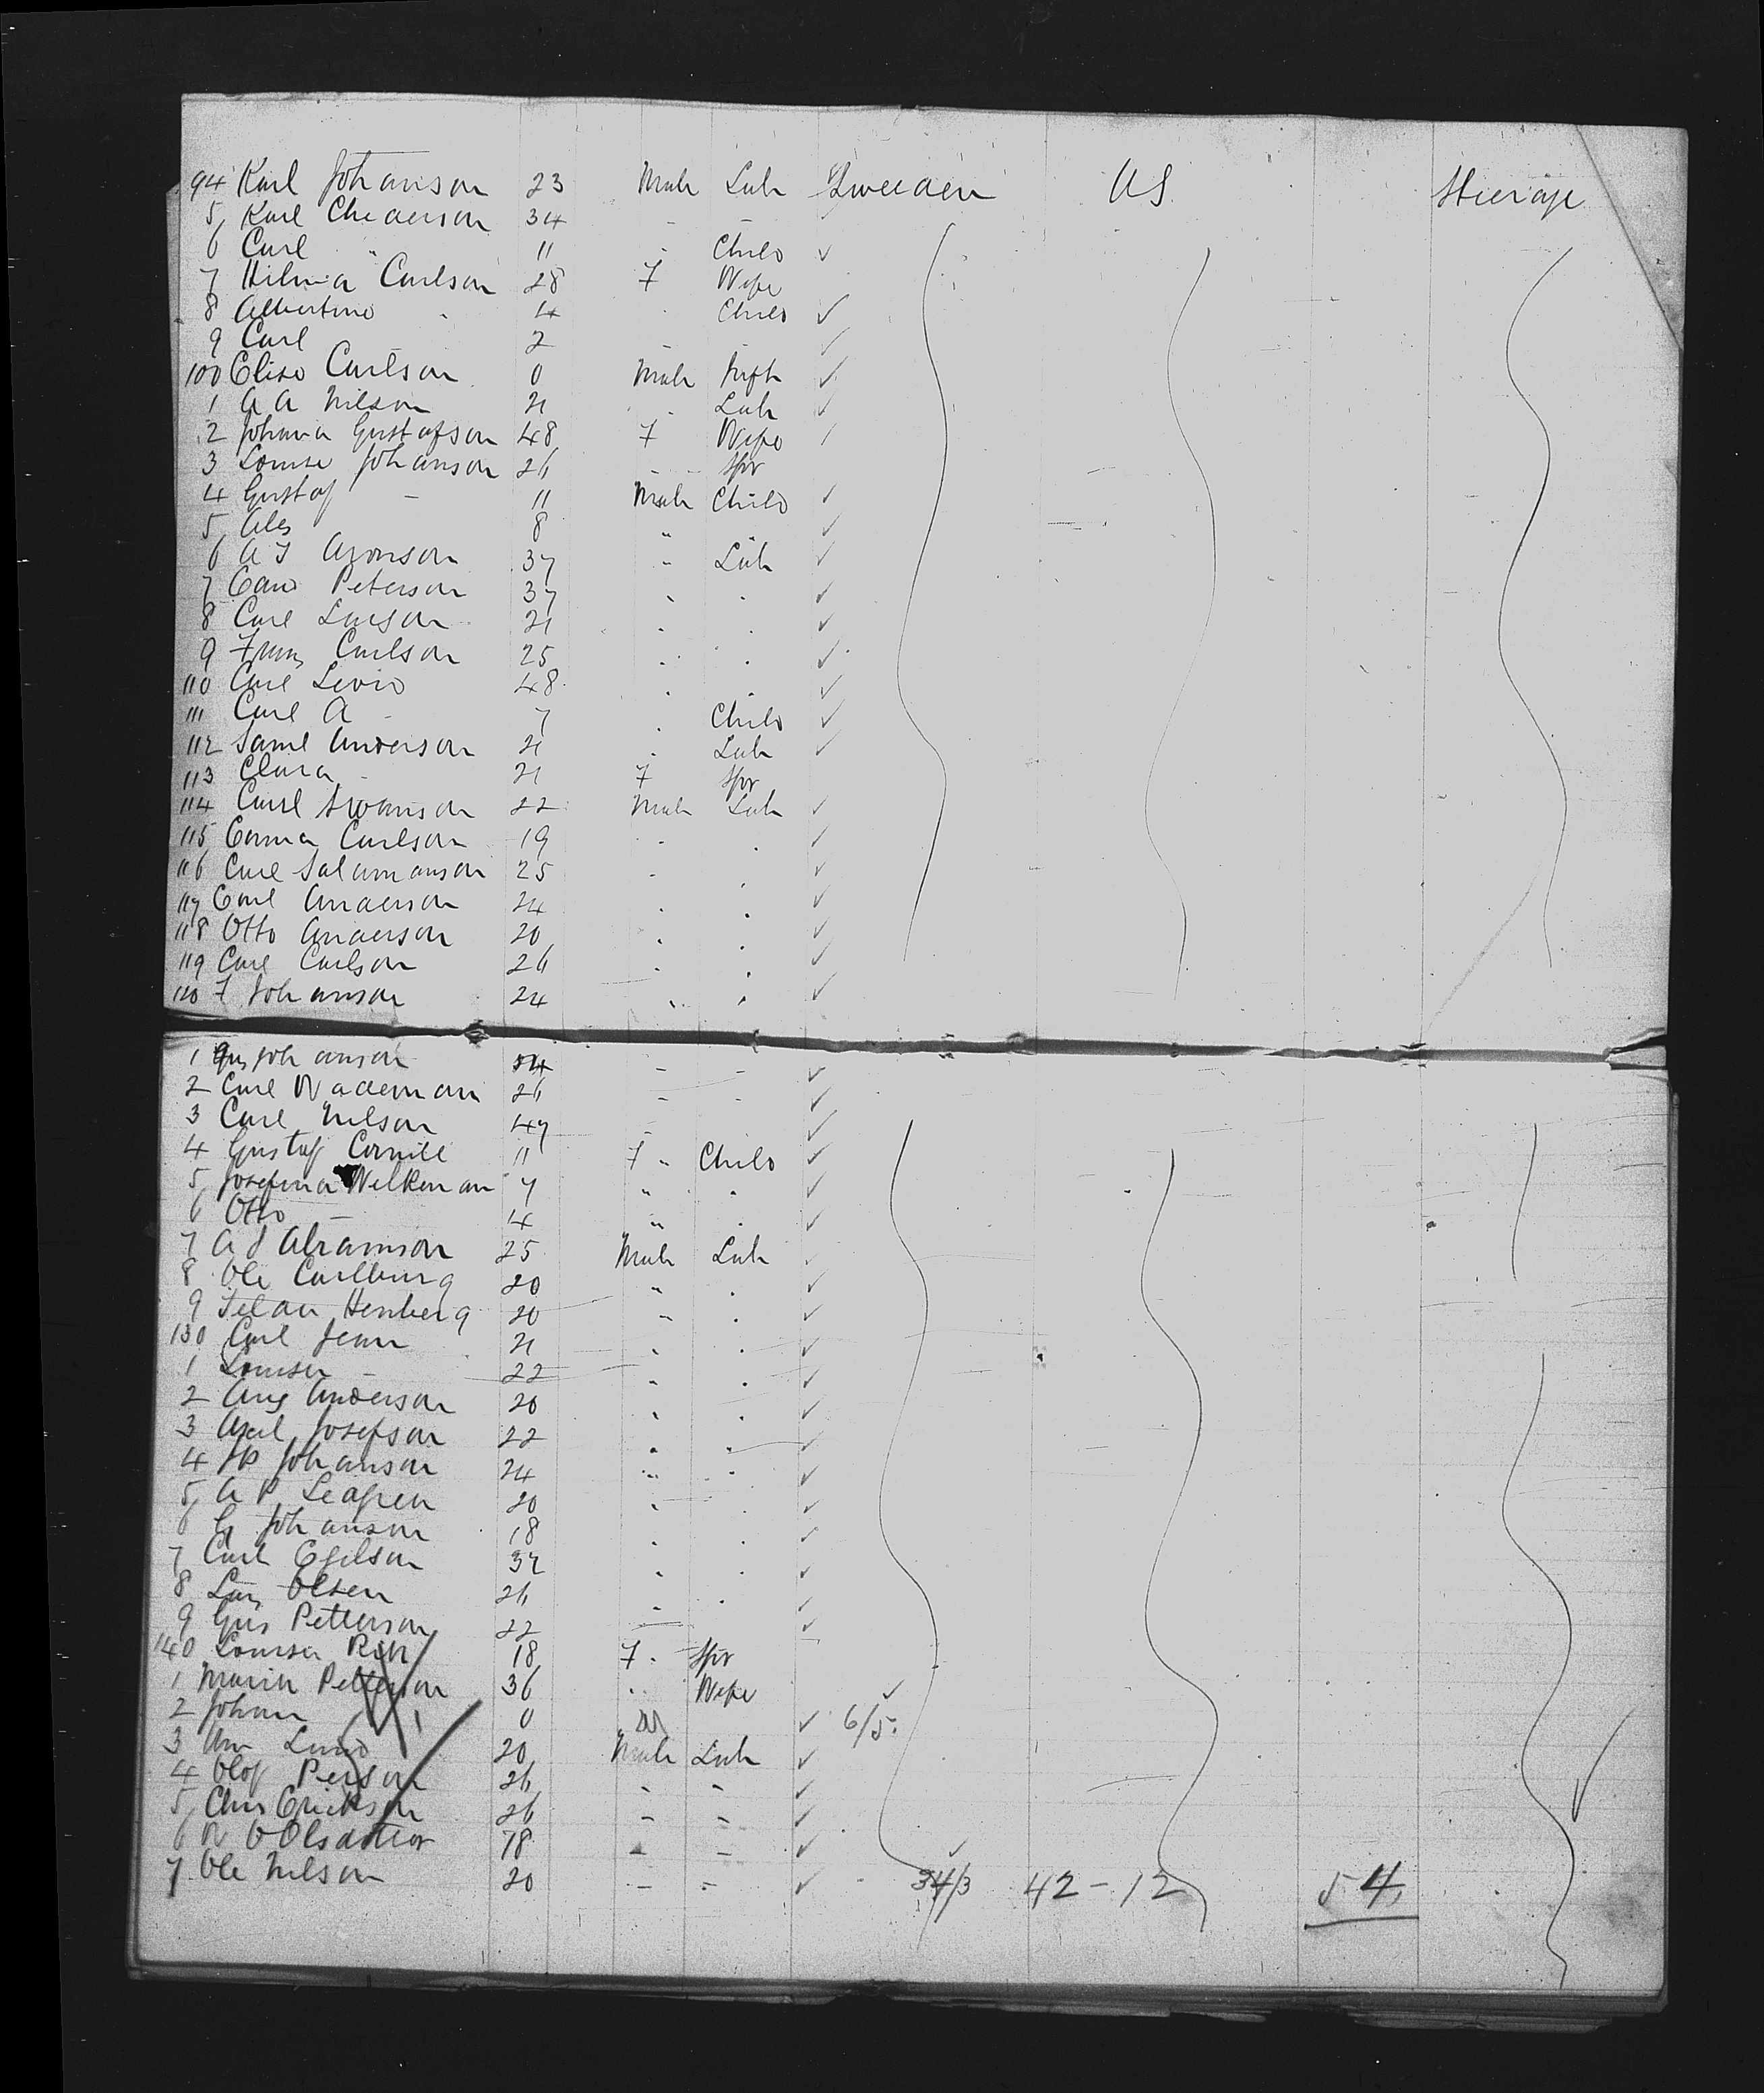 94 Karl Johanson 23 Male Lab Sweden US Steerage
5 Karl Chiderson 34 - -
6 Carl " 11 " Child ✓
7 Hilma Carlson 28 F Wife
8 Albertina " 4 " Child ✓
9 Carl 2 ✓
100 Carlson 0 Male Inft ✓
1 A A Nilson 21 " Lab ✓
2 Johana Gustafson 48 F Wife
3 Louise Johanson 26 - Spr
4 Gustaf - 11 Male Child ✓
5 Alex 8 " ✓
6 A J Aronson 37 " Lab ✓
7 Peterson 37 " " ✓
8 Carl Larson 21 " " ✓
9 Franz Carlson 25 " " ✓
110 Carl 48 " " ✓
111 Carl A - 7 " Child ✓
112 Saml Anderson 21 " Lab ✓
113 Clara - 21 F Spr
114 Carl Swanson 22 Male Lab ✓
115 Emma Carlson 19 " " ✓
116 Carl Salamanson 25 " ✓
117 Emil Anderson 24 " " ✓
118 Otto Anderson 20 " " ✓
119 Carl Carlson 26 " " ✓
120 F Johanson 24 " " ✓
1 Gus Johanson - - ✓
2 Carl Wademan 26 - - ✓
3 Carl Nilson 47 - ✓
4 Gustaf 11 F " Child ✓
5 Josefina Welkman 7 " " ✓
6 Otto - 4 " " ✓
7 A J Abramson 25 Male Lab
8 Ole Carlburg 20 " " ✓
9 Henberg 20 " " ✓
130 Carl Jean 21 " " ✓
1 Louisa - 22 " " ✓
2 Aug Anderson 20 " " ✓
3 Axel Josefson 22 " " ✓
4 J P Johanson 24 " " ✓
5 A P 20 " " ✓
6 G Johanson 18 " " ✓
7 Carl Egilson 32 " " ✓
8 Lars Olsen 26 " " ✓
9 Gus Petterson 22 - ✓
140 Louisa 18 F " Spr
1 Maria Petterson 36 " Wife ✓
2 Johan 0 M ✓ 6/5
3 Lund 20 Male Lab ✓
4 Olof Person 26 - - ✓
5 Chas Erickson 26 - - ✓
6 18 - - ✓
7 Ole Nilson 20 - - ✓ 34/3 42-12 54